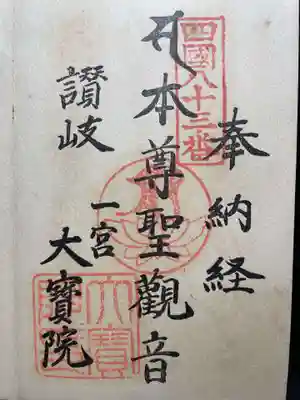 奉納経
四國八十三番
本尊聖觀音
讃岐
一宮
大寶院